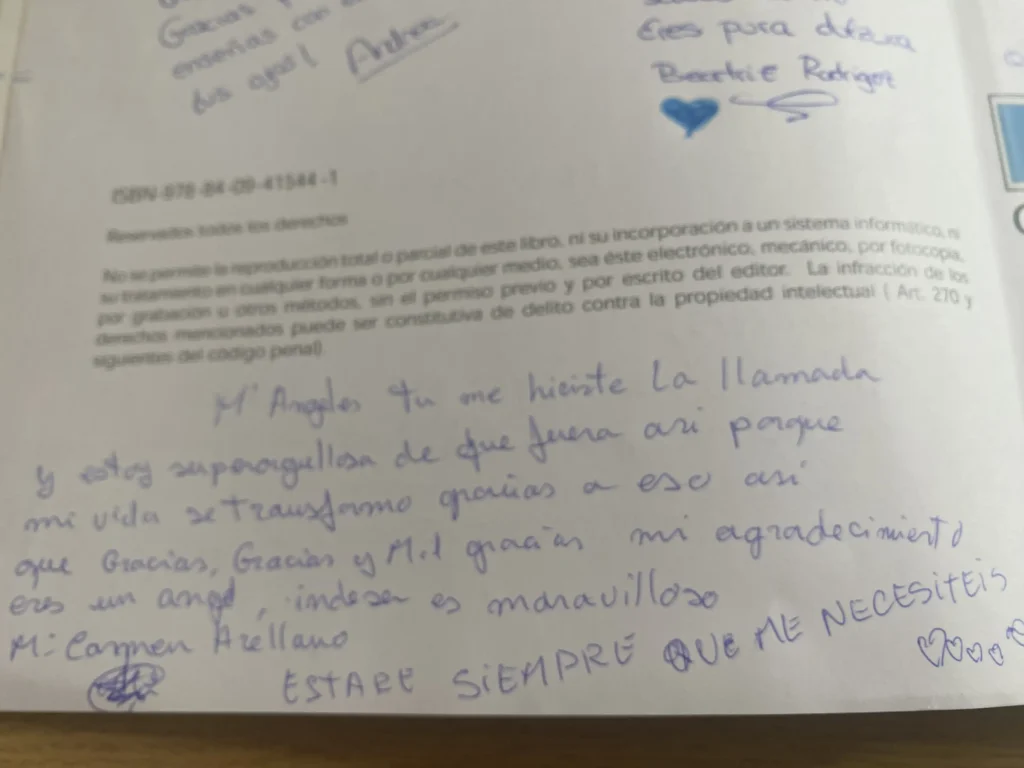 Gracias
enseñas con
tus agua! Andrea
Eres pura dulzura
Rodriguez
ISBN-978-84-09-41544-1
Reservados todos los derechos
No se permite la reproducción total o parcial de este libro, ni su incorporación a un sistema informático, ni
su tratamiento en cualquier forma o por cualquier medio, sea éste electrónico, mecánico, por fotocopia,
por grabación u otros métodos, sin el permiso previo y por escrito del editor. La infracción de los
derechos mencionados puede ser constitutiva de delito contra la propiedad intelectual ( Art. 270 y
siguientes del código penal).
Mª Angeles tu me hiciste la llamada
y estoy superorgullosa de que fuera asi porque
mi vida se transformo gracias a eso asi
que Gracias, Gracias y Mil gracias mi agradecimiento
eres un angel, es maravilloso
M: Carmen Arellano
ESTARE SiEMPRE QUE ME NECESITEIS